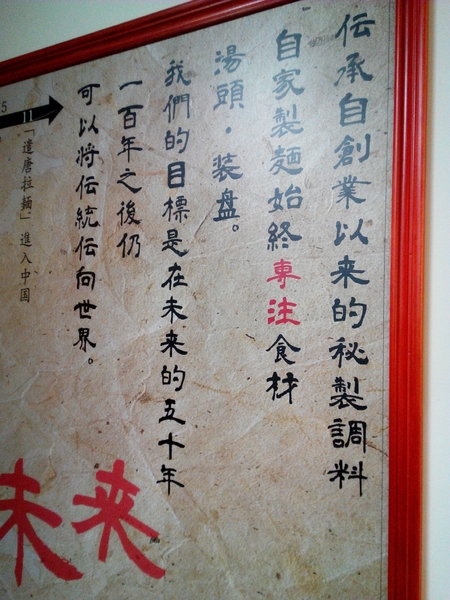 伝承自創業以来的秘製調料
自家製麵始終専注食材
湯頭・装盘。
我們的目標是在未来的五十年
一百年之後仍
可以将伝統伝向世界。
5
11
「遣唐拉麵」進入中国
未来